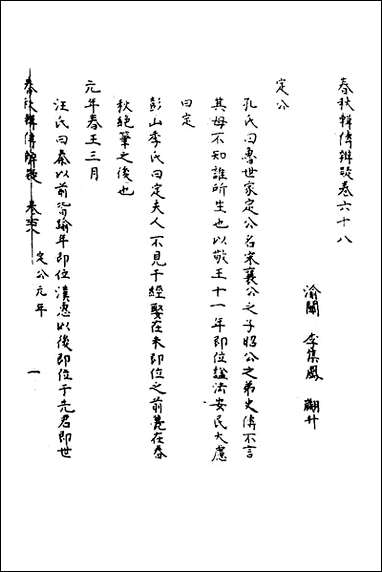 春秋輯傳辨疑卷六十八
渝關 李集鳳 翽升
定公
孔氏曰魯世家定公名宋襄公之子昭公之弟史傳不言
其母不知誰所生也以敬王十一年即位諡法安民大慮
曰定
彭山李氏曰定夫人不見于經娶在未即位之前薨在春
秋絕筆之後也
元年春王三月
汪氏曰秦以前皆踰年即位漢惠以後即位于先君即世
春秋輯傳辨疑 卷六十八 定公元年 一